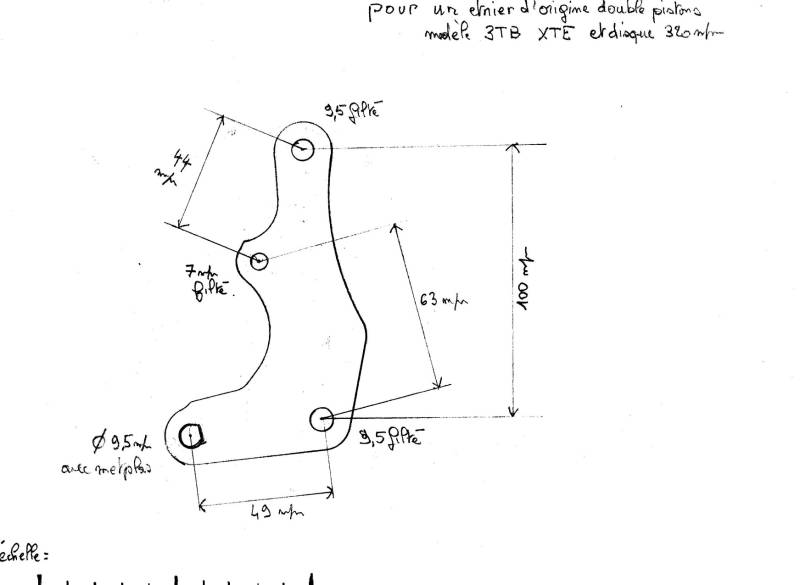 pour un étrier d'origine double pistons
modèle 3TB XTE et disque 320 m/m
9,5 fileté
44
m/m
7 m/m
fileté.
63 m/m
100 m/m
Ø 9,5 m/m
avec meplats
9,5 fileté
49 m/m
échelle :